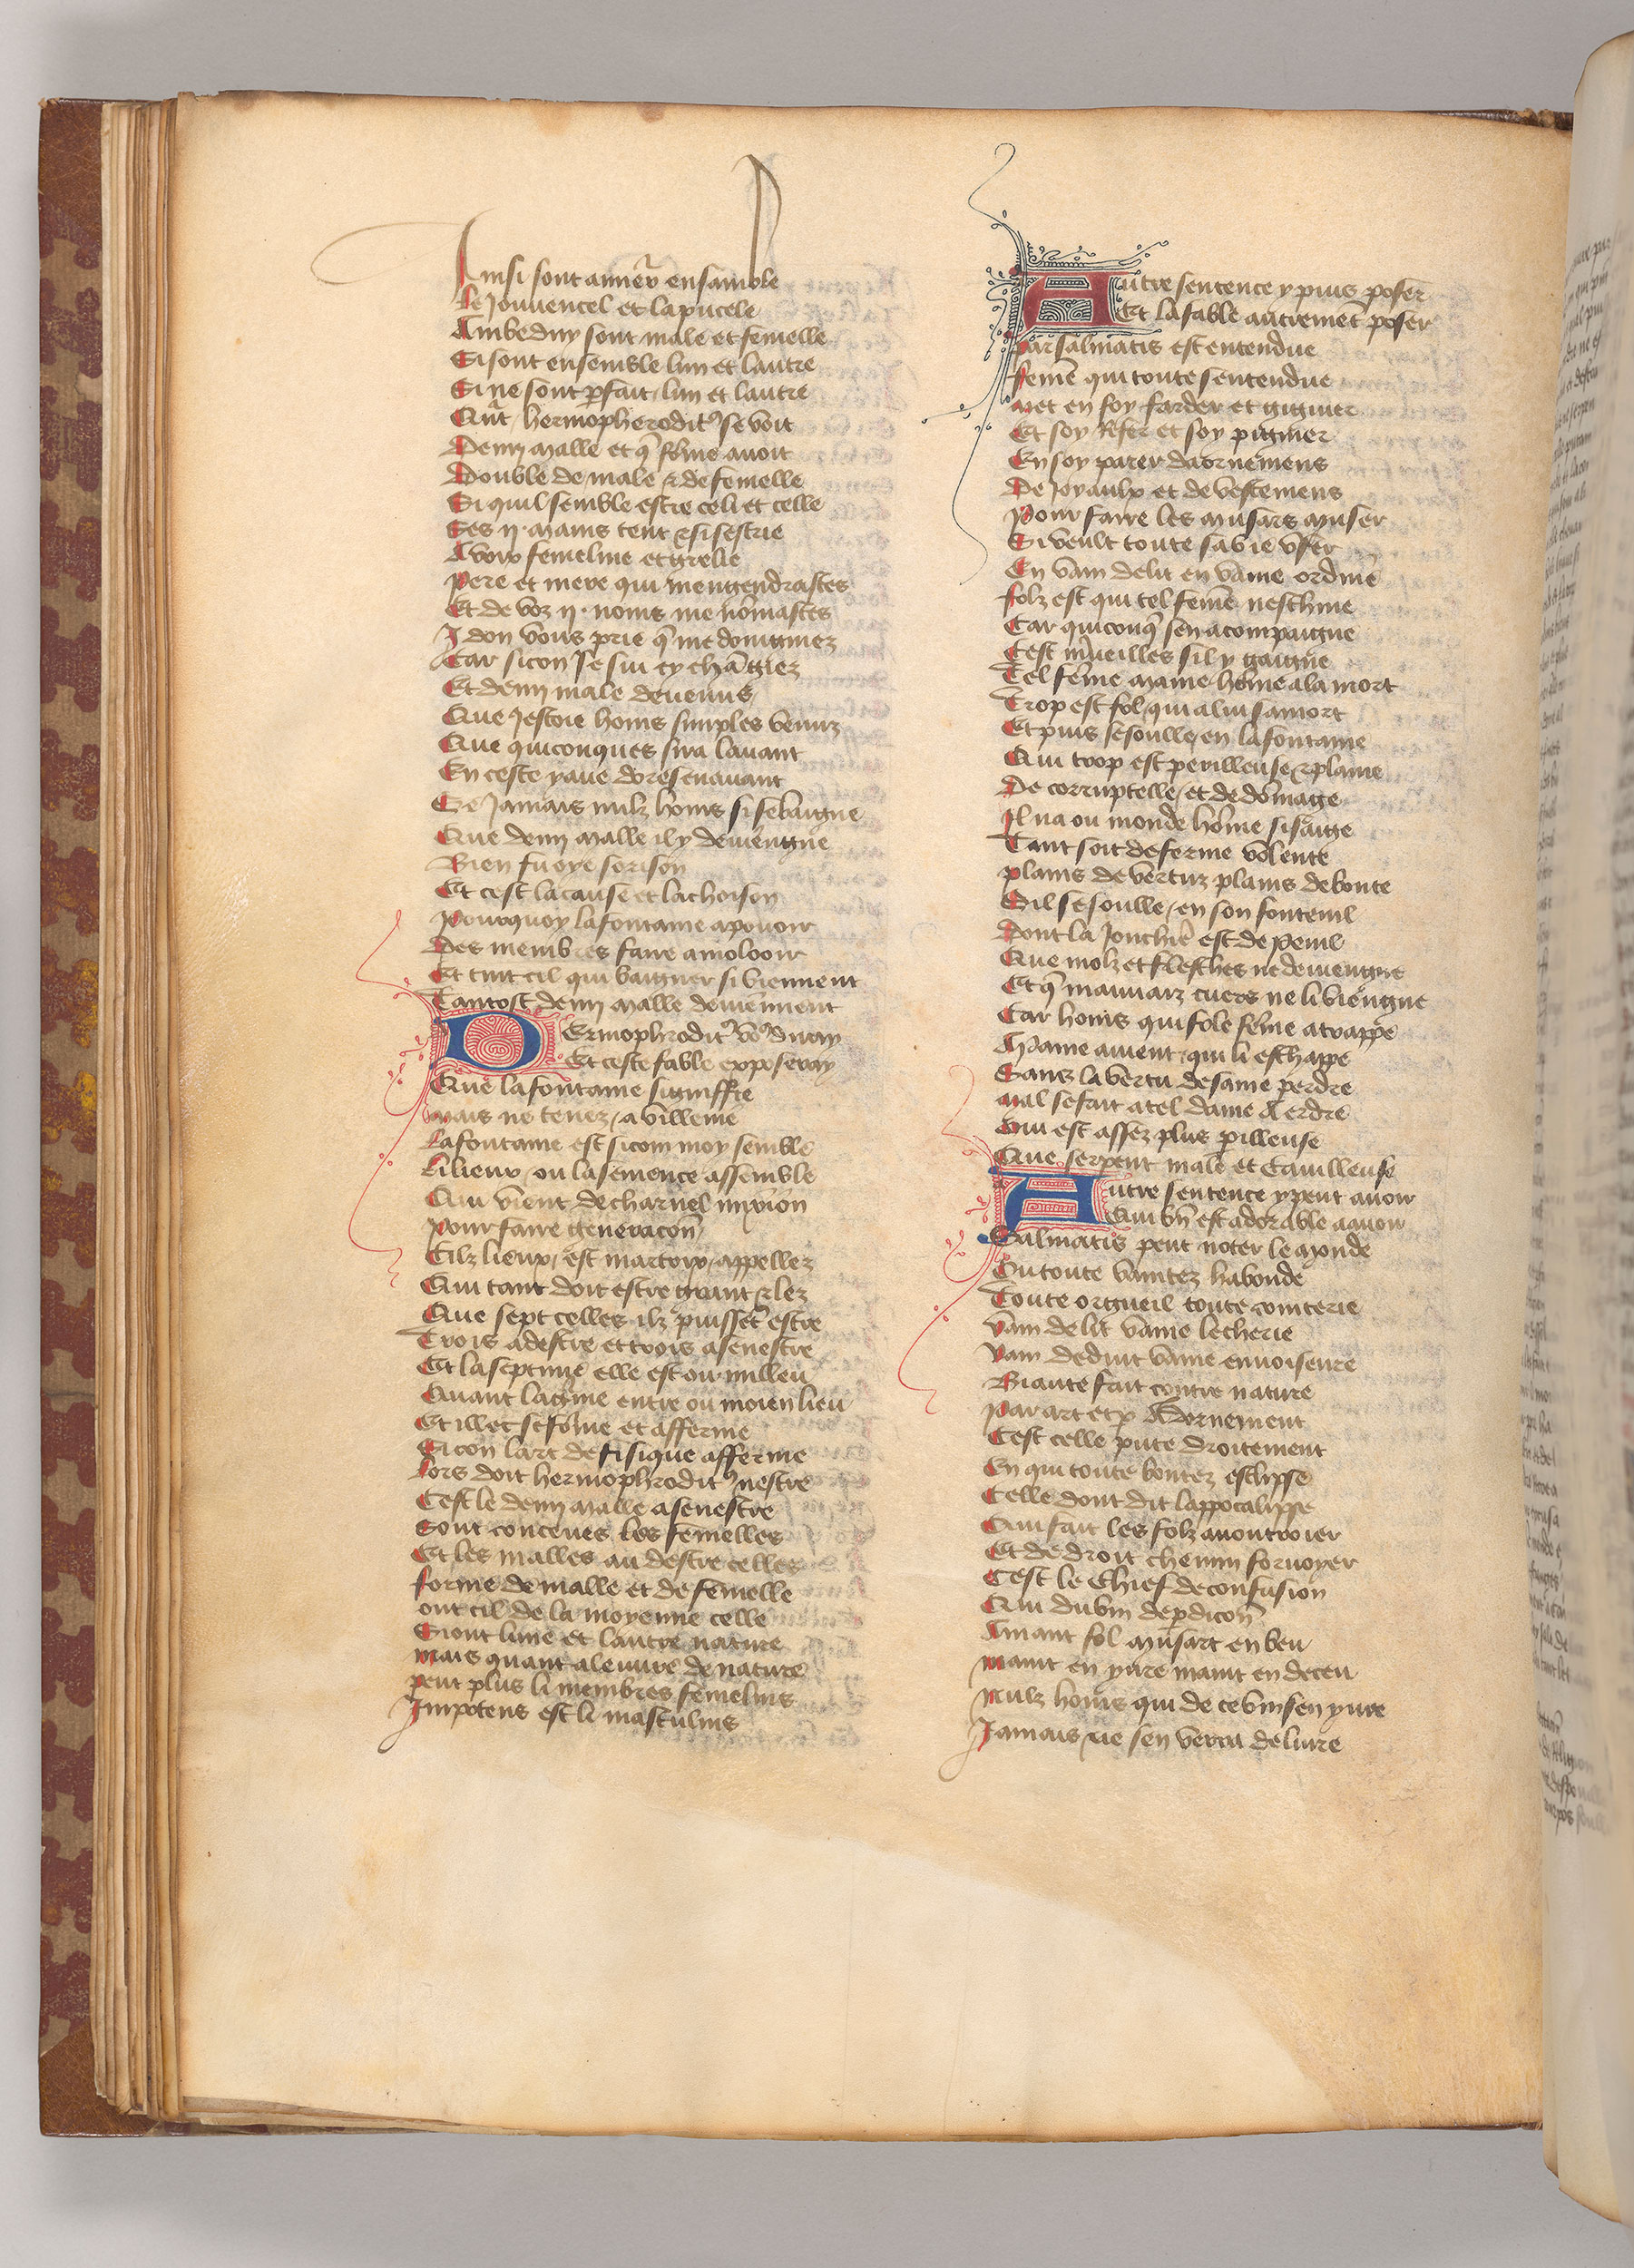 Ainsi sont aünez ensamble
Le Jouuencel et la pucele
Ambeduy sont male et femelle
Si sont ensemble lun et lautre
Si ne sont pfait lun et lautre
Qñt hermopherodit9 se voit
Demy malle et q̃ fẽme auoit
Double de male & de femelle
Si quil semble estre celi et celle
Ses ij mains tent & si sestrie
A voix femeline et grelle
Pere et mere qui mengendrastes
Et de voz ij noms me nõmastes
J don vous prie q̃ me donigniez
Car sicon Je sui cy chãgiez
Et demy male deuenus
Que Jestoie homs simples venuz
Que quiconques sira lauant
En ceste yaue doresenauant
Ce Jamais nulz hõms si se baigne
Que demy malle il y deuiengne
Bien fu oye sorison
Et cest la cause et lachoison
Pourquoy la fontaine a pouoir
Des membres faire amolooir
Et tuit cil qui baigner si viennent
Tantost demy malle deuiennent
Dermophrodit9 vo9 diray
Et ceste fable exposeray
Que la fontaine signiffie
Mais ne tenez a villenie
La fontaine est sicom moy semble
Li lieux ou la semence assemble
Qui vient de charnel mixion
Pour faire generacoñ
Cilz lieux est martorix appellez
Qui tant doit estre grant & lez
Que sept celles ilz puissẽt estre
Trois a destre et trois a senestre
Et la septime elle est ou milieu
Quant la gme entre ou moien lieu
Et illec se fõme et afferme
Sicon lart de fisique afferme
Lors doit hermophrodit9 nestre
Cest le demy malle a senestre
Sont conceues les femelles
Et les malles au destre celles
Forme de malle et de femelle
Ont cil de la moyenne celle
Si ont lune et lautre nature
Mais quant a leuure de nature
Peut plus li membres femelins
Jmpotens est li masculins
Autre sentence y puis poser
Et la fable autremet poser
Par salmatis est entendue
Femẽ qui toute sentendue
Met en soy farder et guigner
Et soy lifer et soy pigner
En soy parer daornemens
De Joyaulx et de vestemens
Pour faire les musars muser
Si veult toute sa vie vser
En vain delit en vaine ordure
Folz est qui tel femẽ neschiue
Car quiconq̃ sen acompaigne
Cest mueilles sil y gaigne
Tel fẽme maine hõme a la mort
Trop est fol qui a lui samort
Et puis se soulle en la fontaine
Qui trop est perilleuse & plaine
De corruptelle et de dõmage
Il na ou monde hõme si saige
Tant soit de ferme volente
Plains de vertuz plains de bonte
Sil se soulle en son fontenil
Dont la Jonchie est de penil
Que molz et flesches ne deuiengne
Et q̃ mauuaiz cuers ne li viengne
Car homs qui fole fẽme atrappe
A paine auient qui li eschappe
Sanz la vertu de same perdre
Mal se fait a tel dame Aerdre
Qui est assez plus perilleuse
Que serpent male et Cauilleuse
Autre sentence y peut auoir
Qui bñ est adorable a auoir
Salmatis peut noter le monde
Ou toute vanitez habonde
Toute orgueil toute cointerie
Vain delit vaine lecherie
Vain deduit vaine enuoiseure
Biaute fait contre nature
Par art et p Adornement
Cest celle pute droitement
En qui toute bontez esclipse
Celle dont dit lappocalipse
Qui fait les folz auoutroier
Et de droit chemin foruoyer
Cest le Chief de confusion
Qui du vin de pdicoñ
Maint fol musart en beu
Maint en yure maint en deceu
Nulz homs qui de ce vin sen yure
Jamais ne sen verra deliure